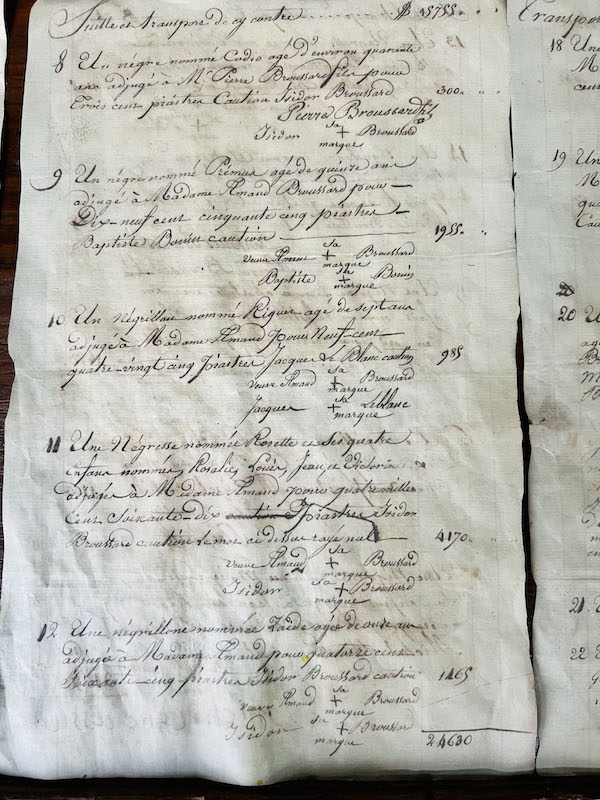 Suitte et transport de cy contre $ 15755 . .
8 Un négre nommé Codio agé d'environ quarante
ans adjugé à Mr. Pierre Broussard fils pour
Trois cent piastres Caution Isidor Broussard 300 . .
Pierre Broussard fils
Sa
Isidor + Broussard
marque
9 Un négre nommé Prémus agé de quinze ans
adjugé à Madame Amand Broussard pour —
Dix-neuf cent cinquante cinq piastres —
Baptiste Bonin caution — 1955 . .
Sa
veuve Amand + Broussard
marque
Sa
Baptiste + Bonin
marque
10 Un Négrillon nommé Riquer agé de sept ans
adjugé à Madame Amand pour Neuf cent
quatre-vingt cinq Piastres Jacques Le Blanc caution 985
Sa
Veuve Amand + Broussard
marque
Jacques + Leblanc
marque
11 Une Négresse nommée Rosette et ses quatre
enfans nommés, Rosalie, Louis, Jean, et Victorine
adjugés à Madame Amand pour quatre milles
Cent Soixante-dix caution Piastres Isidor
Broussard caution le mot ci dessus rayé nul — 4170 . .
Sa
veuve Amand + Broussard
marque
Sa
Isidor + Broussard
marque
12 Une négrillone nommée Zaïde agée de onze ans
adjugée à Madame Amand pour quatorze cent
Soixante-cinq piastres Isidor Broussard caution 1465
Sa
veuve Amand + Broussard
marque
Sa
Isidor + Broussard
marque
24630
Transpor
18 Une
M
cent
19 Un
M
qua
Cau
20 U
agé
B
M
21.
22